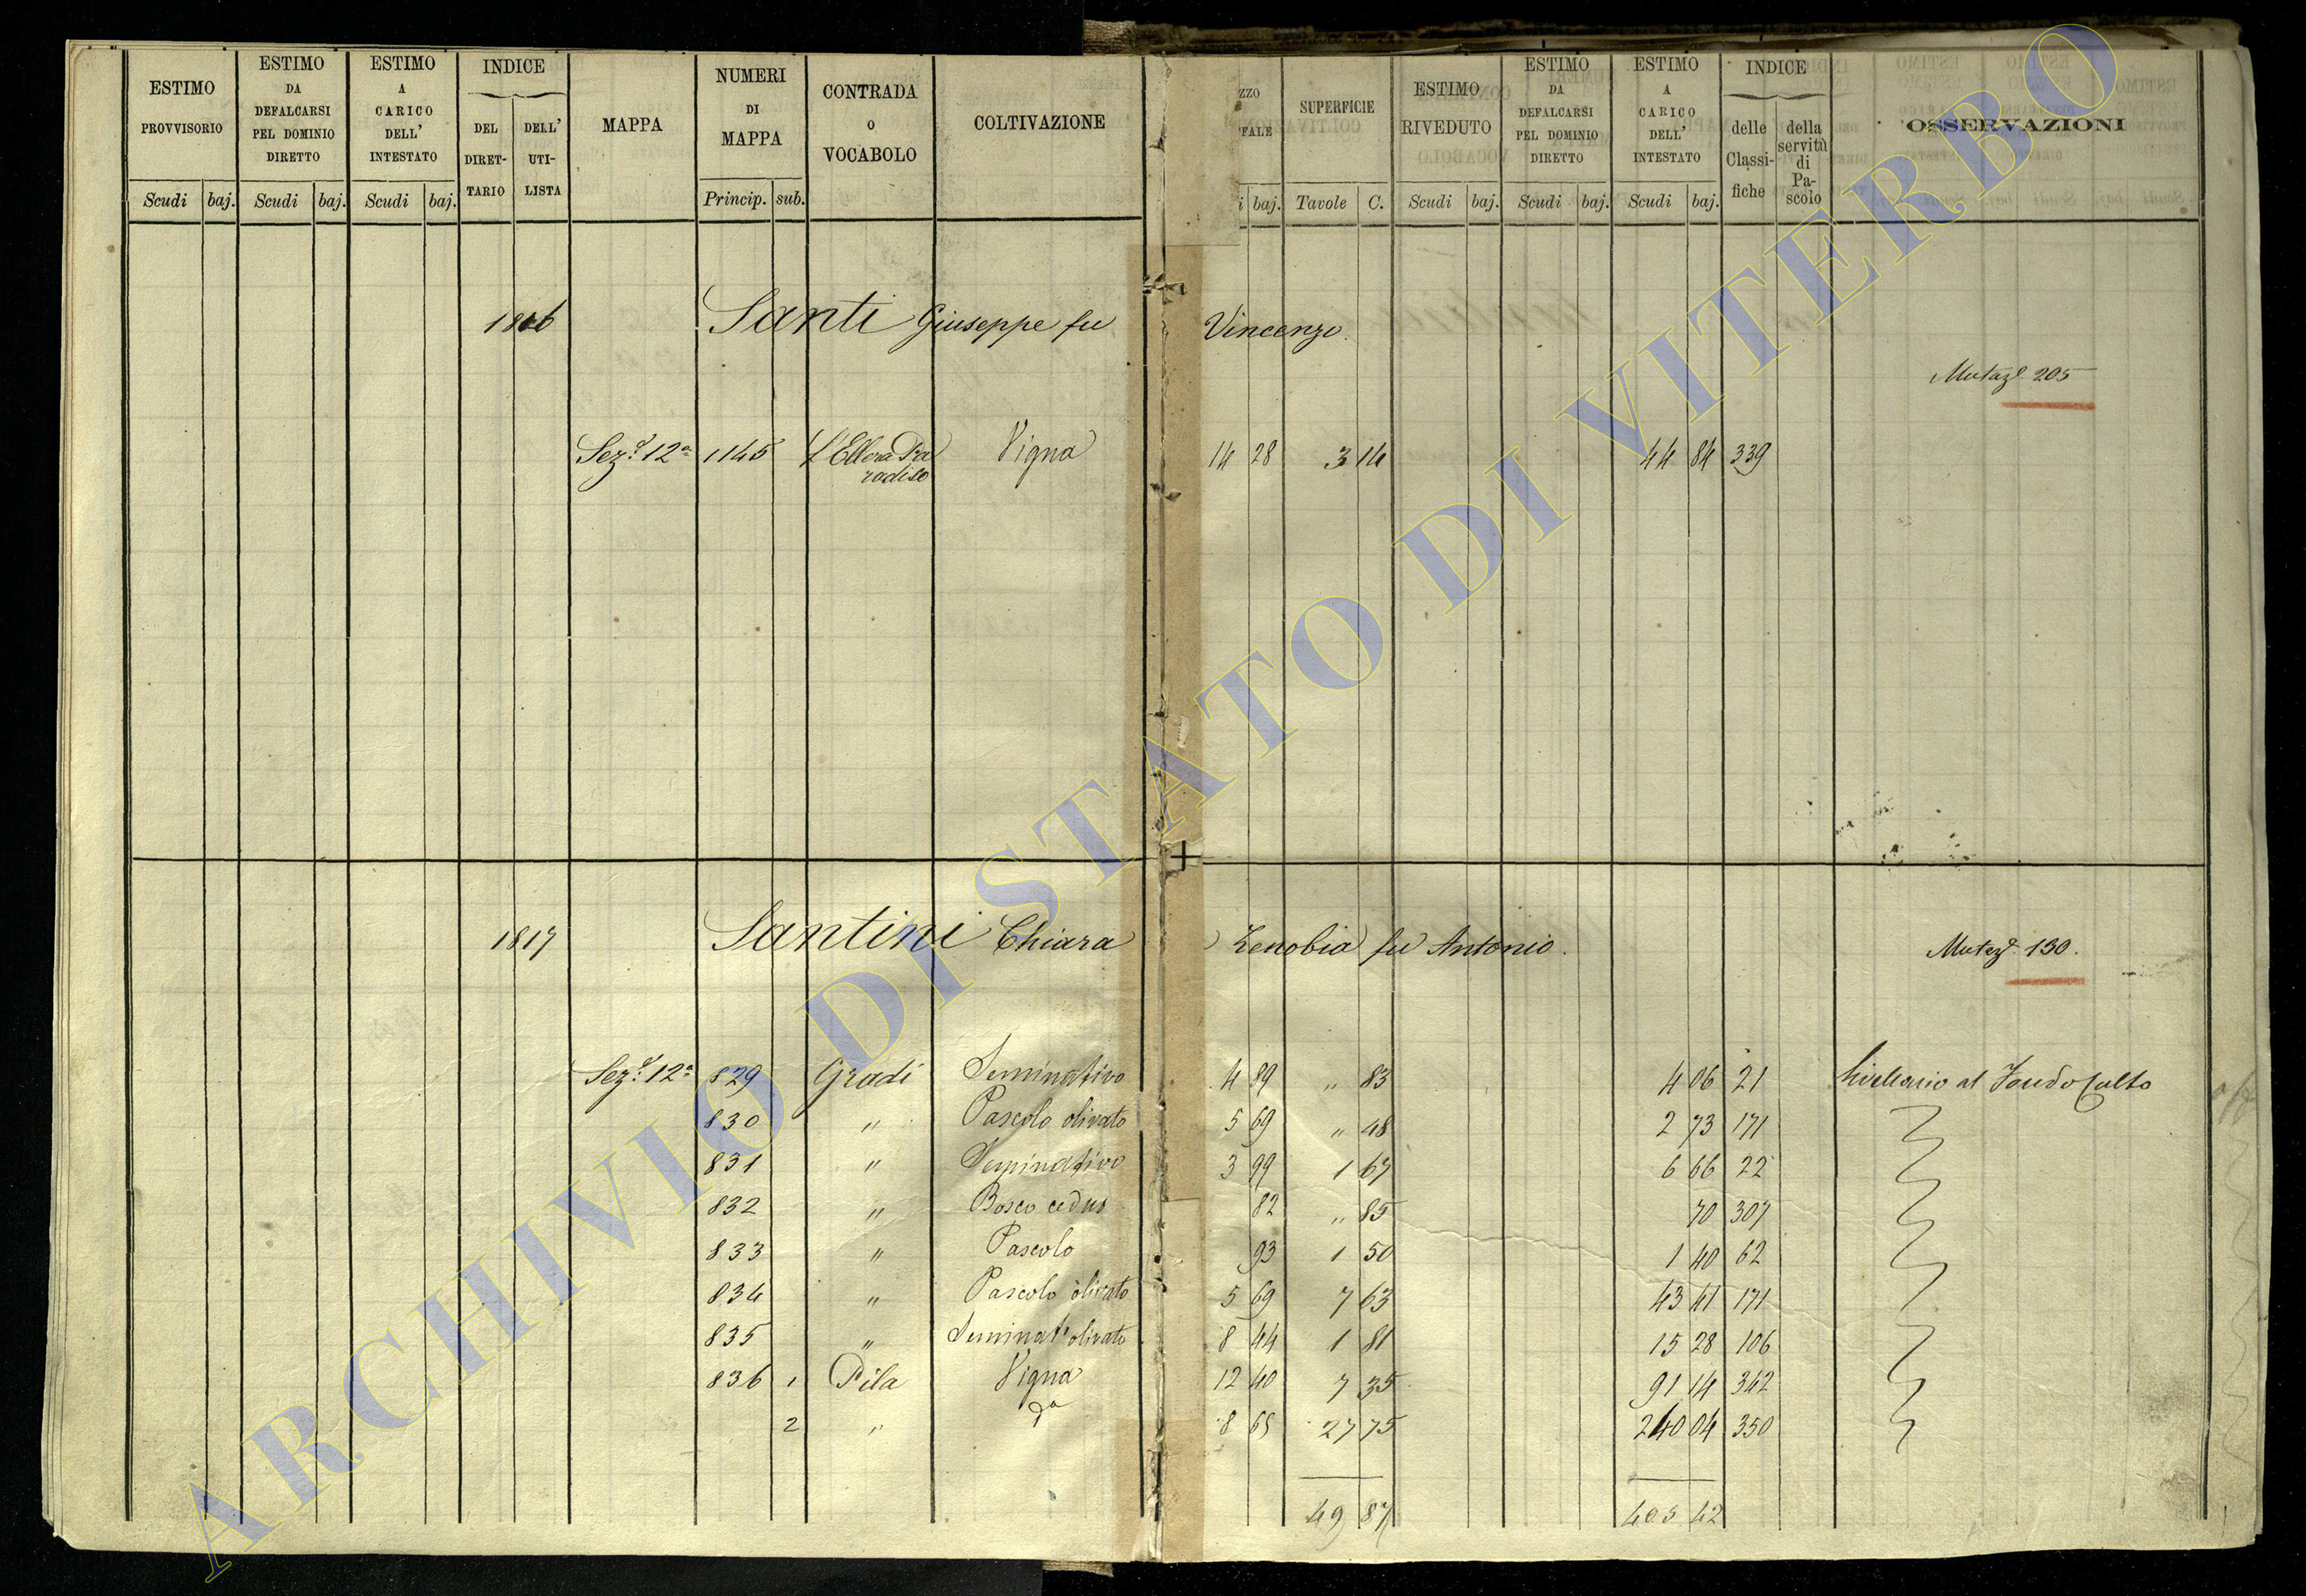 ESTIMO PROVVISORIO | ESTIMO DA DEFALCARSI PEL DOMINIO DIRETTO | ESTIMO A CARICO DELL' INTESTATO | INDICE DEL DIRET-TARIO | DELL' UTI-LISTA | MAPPA | NUMERI DI MAPPA | CONTRADA O VOCABOLO | COLTIVAZIONE | ZZO FALE | SUPERFICIE | ESTIMO RIVEDUTO | ESTIMO DA DEFALCARSI PEL DOMINIO DIRETTO | ESTIMO A CARICO DELL' INTESTATO | INDICE delle Classi-fiche | della servitù di Pa-scolo | OSSERVAZIONI
Scudi baj. Scudi baj. Scudi baj. Princip. sub. i baj. Tavole C. Scudi baj. Scudi baj. Scudi baj.
Santi Giuseppe fu Vincenzo.
Mutaz.e 205
Sez.e 12a 1145 Vigna 14 28 3 14 44 84 339
radiso
1817 Santini Chiara Zenobia fu Antonio. Mutaz.e 130.
Sez.e 12a 829 Gradi Seminativo 4 89 " 83 4 06 21 al Fondo Culto
830 " Pascolo olivato 5 69 " 48 2 73 171
831 " Seminativo 3 99 1 67 6 66 22
832 " Bosco ceduo 82 " 85 70 307
833 " Pascolo 93 1 50 1 40 62
834 " Pascolo olivato 5 69 7 63 43 41 171
835 " Seminat.o olivato 8 44 1 81 15 28 106
836 1 Pila Vigna 12 40 7 35 91 14 342
2 " Da 8 65 27 75 240 04 350
49 87 405 42
ARCHIVIO DI STATO DI VITERBO